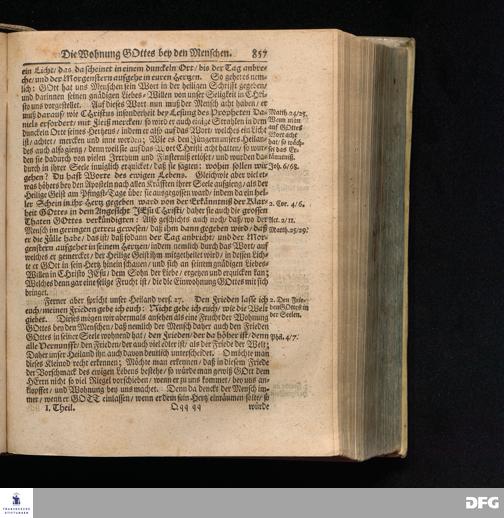 Die Wohnung GOttes bey den Menschen. 857
ein Licht / das da scheinet in einem dunckeln Ort / bis der Tag anbre-
che / und der Morgenstern aufgehe in euren Hertzen. So gehet es nem-
lich: GOtt hat uns Menschen sein Wort in der heiligen Schrifft gegeben /
und darinnen seinen gnädigen Liebes-Willen von unser Seligkeit in CHri-
sto uns vorgestellet. Auf dieses Wort nun muß der Mensch acht haben / er
muß darauf / wie Christus insonderheit bey Lesung des Propheten Da-
niels erfordert / mit Fleiß mercken / so wird er auch einige Strahlen in dem
dunckeln Orte seines Hertzens / indem er also auf das Wort / welches ein Licht
ist / achtet / mercken und inne werden; Wie es den Jüngern unsers Heilan-
des auch also gieng / denn weil sie auf das Wort Christi acht hatten / so wur-
den sie dadurch von vielen Irrthum und Finsterniß erlöset / und wurden da-
durch in ihrer Seele inniglich erquicket / daß sie sagten: wohin sollen wir
gehen? Du hast Worte des ewigen Lebens. Gleichwie aber viel et-
was höhers bey den Aposteln nach allen Kräfften ihrer Seele aufgieng / als der
Heilige Geist am Pfingst-Tage über sie ausgegossen ward / indem da ein hel-
ler Schein in ihr Hertz gegeben ward von der Erkäntniß der Klar-
heit GOttes in dem Angesicht JEsu Christi / daher sie auch die grossen
Thaten GOttes verkündigten: Also geschichts auch noch / daß / wo der
Mensch im geringen getreu gewesen / daß ihm dann gegeben wird / daß
er die Fülle habe / das ist / daß sodann der Tag anbricht / und der Mor-
genstern aufgehet in seinem Hertzen / indem nemlich durch das Wort / auf
welches er gemercket / der Heilige Geist ihm mitgetheilet wird / in dessen Lich-
te er GOtt in sein Hertz hinein schauen / und sich an seinem gnädigen Liebes-
Willen in Christo JEsu / dem Sohn der Liebe / ergetzen und erquicken kan;
Welches denn gar eine selige Frucht ist / die die Einwohnung GOttes mit sich
bringet.
Matth. 24/25.
Wenn man
auf GOttes
Wort acht
hat / so wäch-
set das Er-
käntniß.
Joh. 6/68.
2. Cor. 4/6.
Act. 2/11.
Matth. 25/29.
Ferner aber spricht unser Heiland vers. 27. Den Frieden lasse ich
euch / meinen Frieden gebe ich euch: Nicht gebe ich euch / wie die Welt
giebet. Dieses mögen wir abermals ansehen als eine Frucht der Wohnung
GOttes bey den Menschen / daß nemlich der Mensch daher auch den Frieden
GOttes in seiner Seele wohnend hat / den Frieden / der da höher ist / denn
alle Vernunfft / den Frieden / der auch viel edler ist / als der Friede der Welt;
Daher unser Heiland ihn auch davon deutlich unterscheidet. O möchte man
dieses Kleinod recht erkennen; Möchte man erkennen / daß in diesem Friede
der Vorschmack des ewigen Lebens bestehe / so würde man gewiß GOtt dem
HErrn nicht so viel Riegel vorschieben / wenn er zu uns kommet / bey uns an-
klopffet / und Wohnung bey uns machet. Denn da dencket der Mensch im-
mer / wenn er GOTT einlassen / wenn er dem sein Hertz einräumen solte / so
2. Den Frie-
den GOttes in
der Seelen.
Phil. 4/7.
I. Theil. Qqq qq würde
FRANCKESCHE
STIFTUNGEN
DFG